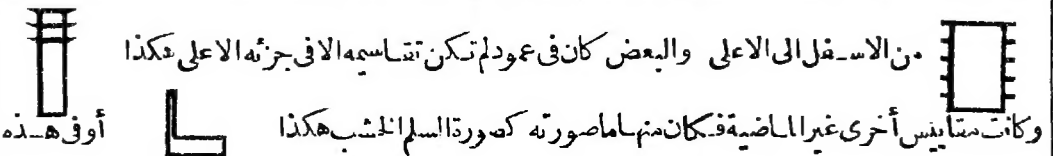 من الاسفل الى الاعلى والبعض كان فى عمود لم تكن تقاسيمه الا فى جزئه الاعلى هكذا
وكانت مقاييس أخرى غير الماضية فكان منها ما صورته كصورة السلم الخشب هكذا أو فى هذه